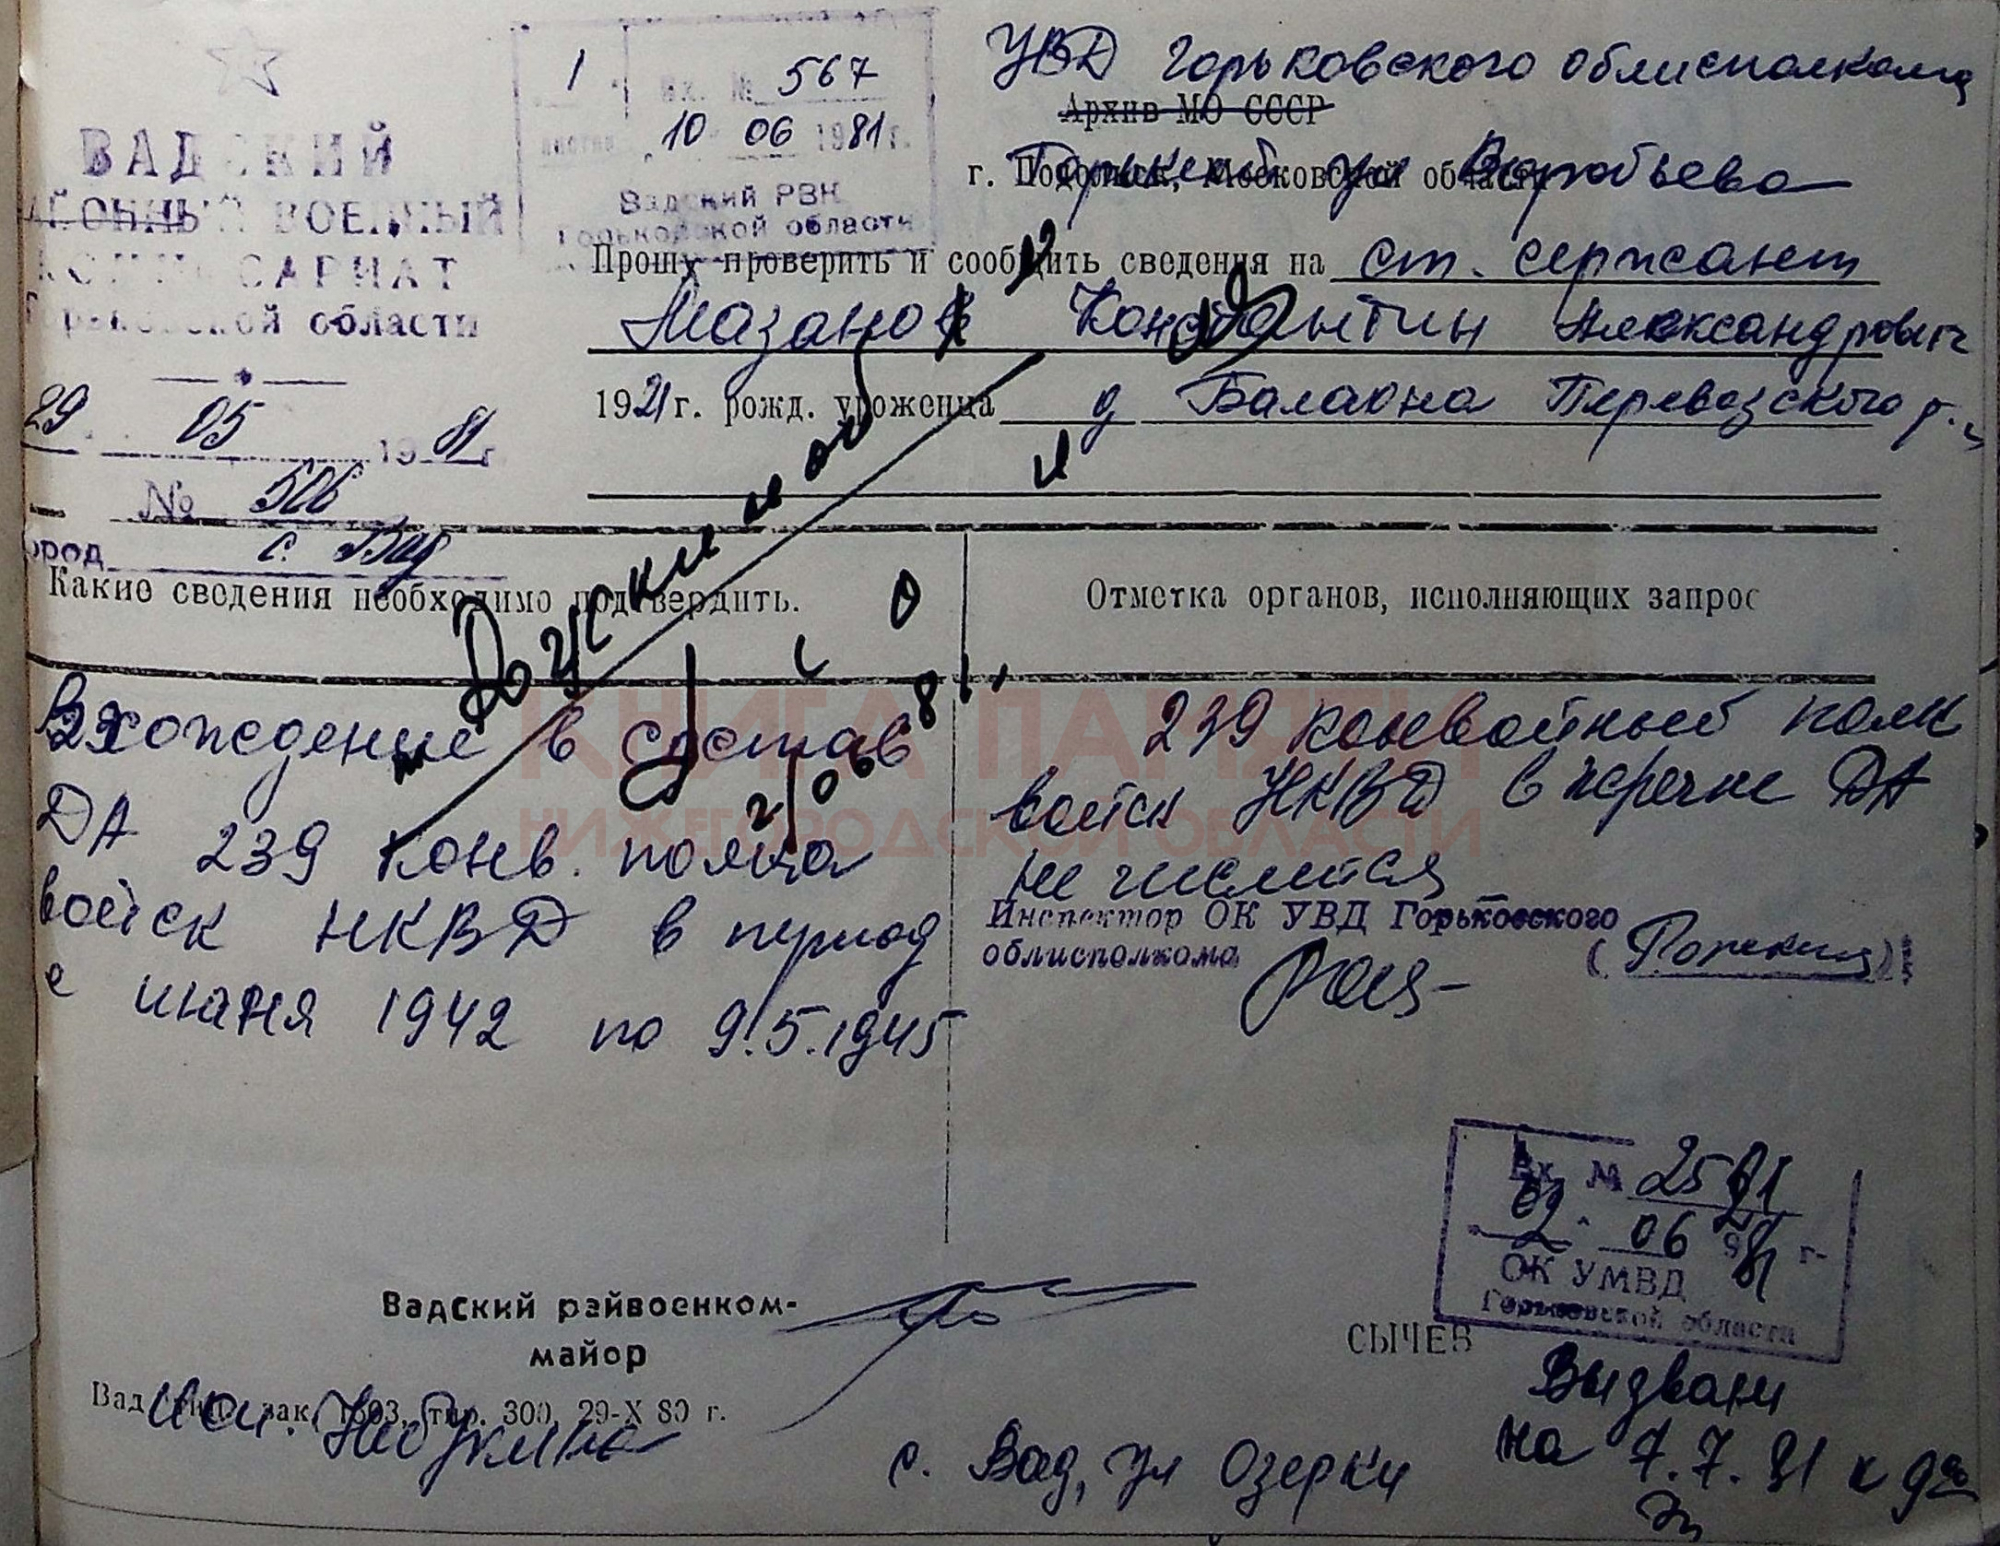 ВАДСКИЙ
ВОЕННЫЙ
КОМИССАРИАТ
Горьковской области
29 05 1981 г.
№ 506
с. Вад
1
Вх. № 567
10 06 1981 г.
Вадский РВК
Горьковской области
УВД Горьковского облисполкома
Архив МО СССР
г. Подольск, Московской области
Горький ул Воробьева
Прошу проверить и сообщить сведения на ст. сержант
Мазанов Константин Александрович
1921 г. рожд. уроженца д Балахна Перевозского р.
Какие сведения необходимо подтвердить.
Отметка органов, исполняющих запрос
Вхождение в состав
ДА 239 конв. полка
войск НКВД в период
с июня 1942 по 9.5.1945
239 конвойный полк
войск НКВД в перечне ДА
не числится
Инспектор ОК УВД Горьковского
облисполкома
КНИГА ПАМЯТИ
НИЖЕГОРОДСКОЙ ОБЛАСТИ
Вх. №
02 06
ОК УМВД
Горьковской области
Вадский райвоенком-
майор
СЫЧЕВ
Вад тип. зак. 1593, тир. 300, 29-X 80 г.
с. Вад, ул Озерки
Вызван
на 7.7.81 к 9